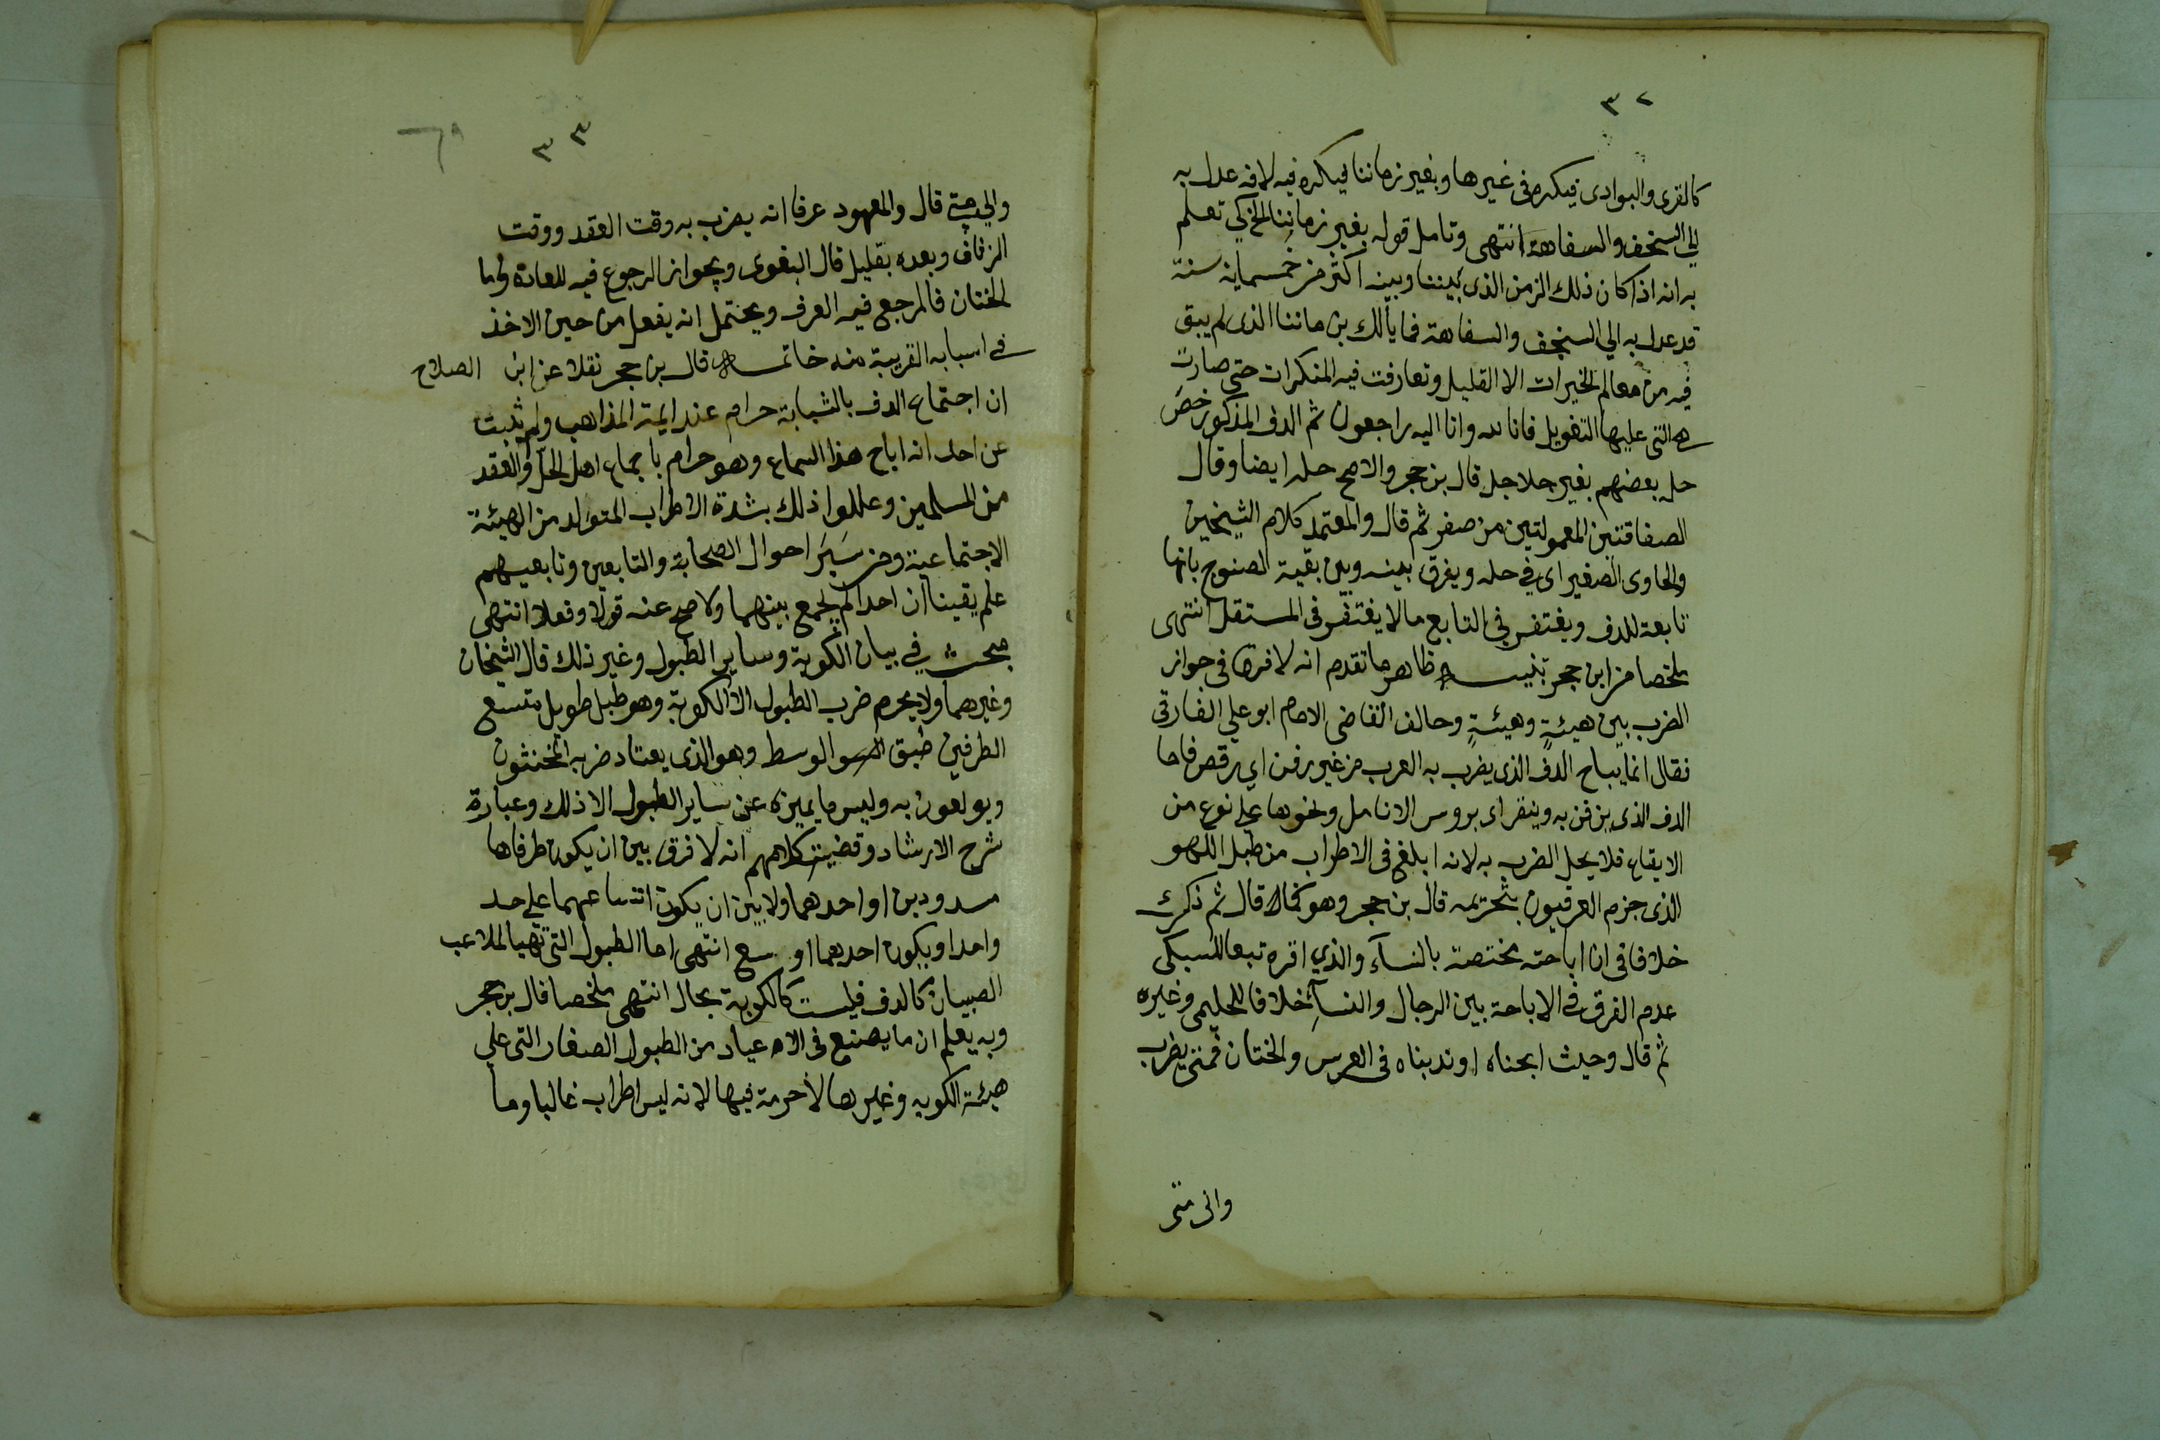 ٣٢
كالقرى والبوادى فيكره فى غيرها وبغير زماننا فيكره فيه لانه عدل به
الي السخف والسفاهة انتهى وتامل قوله بغير زماننا الخ كي تعلم
به انه اذا كان ذلك الزمن الذى بيننا وبينه اكثر من خمسماية سنة
قد عدل به الي السخف والسفاهة فما بالك بزماننا الذى لم يبق
فيه من معالم الخيرات الا القليل وتعارفت فيه المنكرات حتى صارت
هى التى عليها التعويل فانا لله وانا اليه راجعون ثم الدف المذكور خص
حله بعضهم بغير جلاجل قال بن حجر والاصح حله ايضا وقال
الصفاقتين المعمولتين من صفر ثم قال والمعتمد كلام الشيخين
والحاوى الصغير اى في حله ويفرق بينه وبين بقية الصنوج بانها
تابعة للدف ويغتفر في التابع ما لا يغتفر فى المستقل انتهى
ملخصا من ابن حجر تنبيـه ظاهر ما تقدم انه لا فرق فى جواز
الضرب بين هيئةٍ وهيئةٍ وخالف القاضى الامام ابو علي الفارقى
فقال انما يباح الدف الذى يضرب به العرب من غير زفن اي رقص فاما
الدف الذى يزفن به وينقر اى بروس الانامل ونحوها على نوع من
الايقاع فلا يحل الضرب به لانه ابلغ فى الاطراب من طبل اللهو
الذى جزم العرقيون بتحريمه قال بن حجر وهو كما قال ثم ذكر
خلافا فى ان اباحته مختصة بالنساء والذي اقره تبعا للسبكى
عدم الفرق في الاباحة بين الرجال والنساء خلافا للحليمى وغيره
ثم قال وحيث ابحناه او ندبناه فى العرس والختان فمتى يضرب
وانى متى
٣٣
والي متى قال والمعهود عرفا انه يضرب به وقت العقد ووقت
الزفاف وبعده بقليل قال البغوى ويجواز الرجوع فيه للعادة واما
الختان فالمرجع فيه العرف ويحتمل انه يفعل من حين الاخذ
في اسبابه القريبة منه خاتمـه قال بن حجر نقلا عن ابن الصلاح
ان اجتماع الدف بالشبابة حرام عند ايمة المذاهب ولم يثبت
عن احد انه اباح هذا السماع وهو حرام باجماع اهل الحل والعقد
من المسلمين وعللوا ذلك بشدة الاطراب المتولد من الهيئة
الاجتماعية ومن سَبَرَ احوال الصحابة والتابعين وتابعيهم
علم يقينا ان احدا لم يجمع بينهما ولا صح عنه قولا وفعلا انتهى
مبحث في بيان الكوبة وساير الطبول وغير ذلك قال الشيخان
وغيرهما ولا يحرم ضرب الطبول الا الكوبة وهو طبل طويل متسع
الطرفين ضيق الوسط وهو الذى يعتاد ضربه المخنثون
ويولعون به وليس ما يميزه عن ساير الطبول الا ذلك وعبارة
شرح الارشاد وقضية كلامهم انه لا فرق بين ان يكون طرفاها
مسدودين او احدهما ولا بين ان يكون اتساعهما على حد
واحد او يكون احدهما اوسع انتهى اما الطبول التى تهيا لملاعب
الصبيان كالدف فليست كالكوبة بحال انتهى ملخصا قال بن حجر
وبه يعلم ان ما يصنع فى الاعياد من الطبول الصغار التى علي
هيئة الكوبه وغيرها لا حرمة فيها لانه ليس اطراب غالبا وما